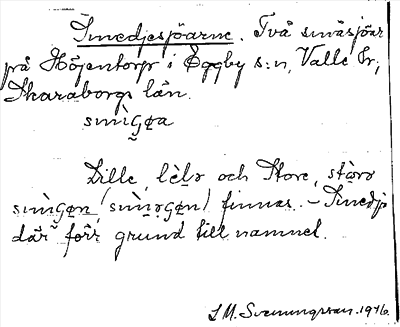 Smedjesjöarne. Två småsjöar
på Höjentorp i Eggby s:n, Valle hr;
Skaraborgs län.
smìgǝa
Lille, lìlǝ och Store, stòrǝ
smìgǝn (smìŋǝgǝn) finnas. – Smedja
där för grund till namnet.
S.M. Svenungsson. 1916.